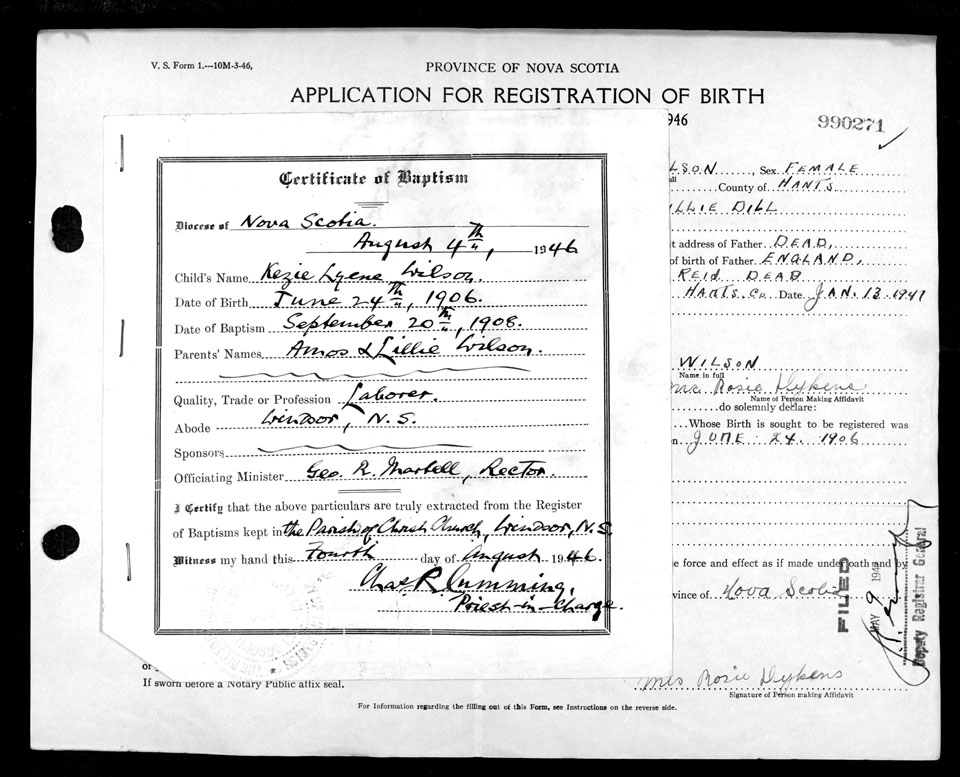 V. S. Form 1.---10M-3-46,
PROVINCE OF NOVA SCOTIA
APPLICATION FOR REGISTRATION OF BIRTH
946
990271
Certificate of Baptism
Diocese of Nova Scotia.
August 4th, 1946
Child's Name Kezie Lyene Wilson.
Date of Birth June 24th, 1906.
Date of Baptism September 20th, 1908.
Parents' Names Amos & Lillie Wilson.
Quality, Trade or Profession Laborer.
Abode Windsor, N.S.
Sponsors
Officiating Minister Geo. R. Martell, Rector.
I Certify that the above particulars are truly extracted from the Register
of Baptisms kept in the Parish of Christ Church, Windsor, N.S.
Witness my hand this Fourth day of August 1946.
Chas R. Cumming,
Priest-in-Charge.
LSON, Sex FEMALE
County of HANTS
LLIE DILL
t address of Father DEAD,
of birth of Father ENGLAND,
REID DEAD
HANTS. Co. Date JAN. 13 1947
WILSON
Name in full
Mrs Rosie Dykens
Name of Person Making Affidavit
do solemnly declare:
Whose Birth is sought to be registered was
n JUNE 24. 1906
e force and effect as if made under oath and by
vince of Nova Scotia
FILED
MAY 9 194
Deputy Registrar General
or
If sworn before a Notary Public affix seal.
Mrs Rosie Dykens
Signature of Person making Affidavit
For Information regarding the filling out of this Form, see Instructions on the reverse side.